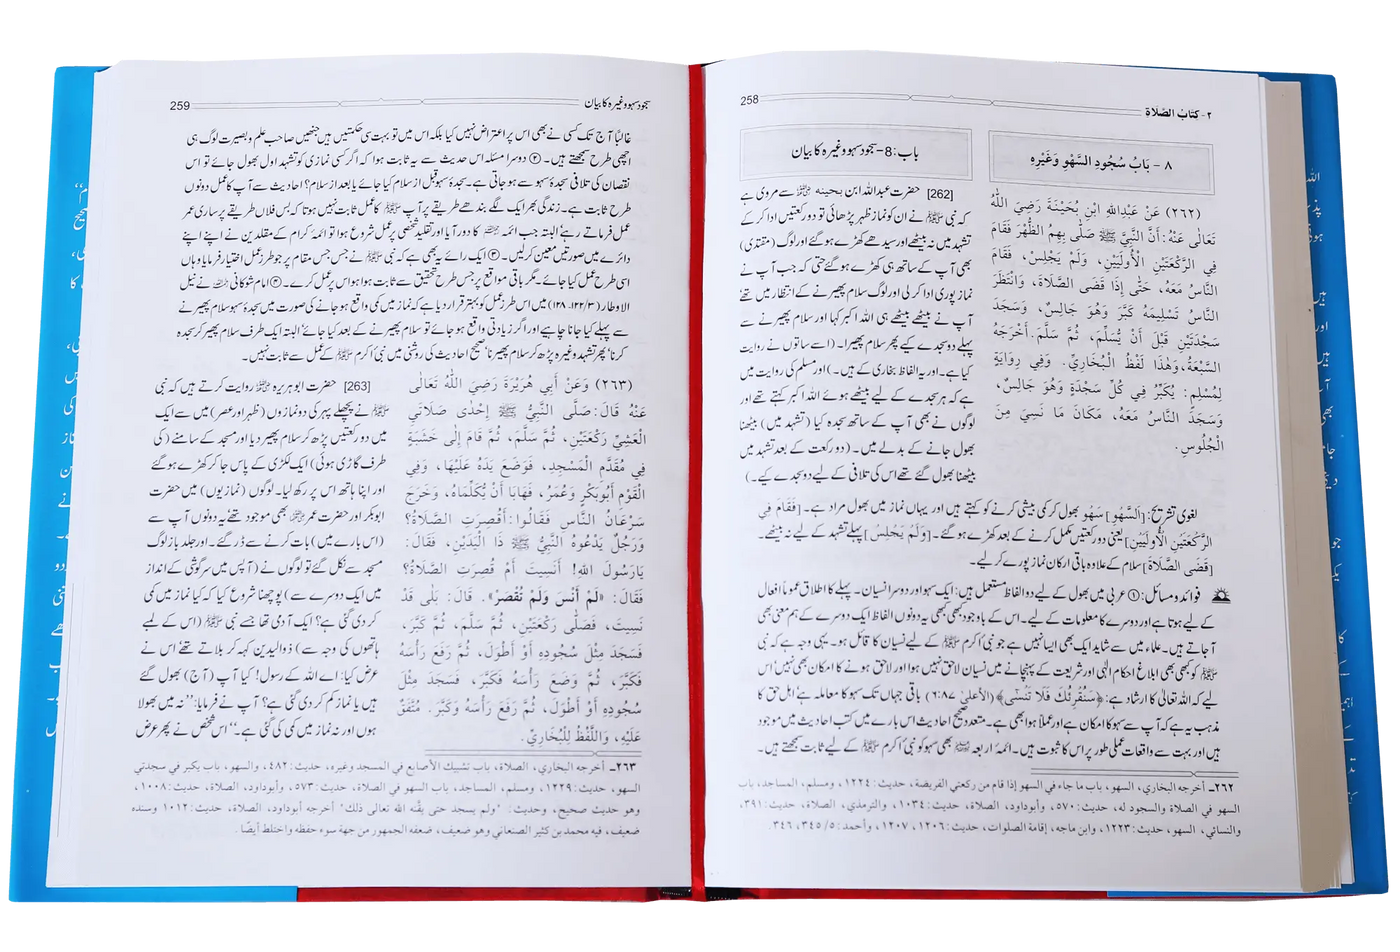 ٢- كتاب الصلاة 258
٨ - بَابُ سُجُودِ السَّهْوِ وَغَيْرِهِ
(٢٦٢) عَنْ عَبْدِاللهِ ابْنِ بُحَيْنَةَ رَضِيَ اللَّهُ
تَعَالَى عَنْهُ: أَنَّ النَّبِيَّ ﷺ صَلَّى بِهِمُ الظُّهْرَ فَقَامَ
فِي الرَّكْعَتَيْنِ الْأُولَيَيْنِ، وَلَمْ يَجْلِسْ، فَقَامَ
النَّاسُ مَعَهُ، حَتَّى إِذَا قَضَى الصَّلَاةَ، وَانْتَظَرَ
النَّاسُ تَسْلِيمَهُ كَبَّرَ وَهُوَ جَالِسٌ، وَسَجَدَ
سَجْدَتَيْنِ قَبْلَ أَنْ يُسَلِّمَ، ثُمَّ سَلَّمَ. أَخْرَجَهُ
السَّبْعَةُ، وَهٰذَا لَفْظُ الْبُخَارِيِّ. وَفِي رِوَايَةٍ
لِمُسْلِمٍ: يُكَبِّرُ فِي كُلِّ سَجْدَةٍ وَهُوَ جَالِسٌ،
وَسَجَدَ النَّاسُ مَعَهُ، مَكَانَ مَا نَسِيَ مِنَ
الْجُلُوسِ.
باب: 8- سجود سہو وغیرہ کا بیان
[262] حضرت عبداللہ ابن بحینہ ؓ سے مروی ہے
کہ نبی ﷺ نے ان کو نماز ظہر پڑھائی تو دو رکعتیں ادا کر کے
تشہد میں نہ بیٹھے اور سیدھے کھڑے ہو گئے اور لوگ (مقتدی)
بھی آپ کے ساتھ ہی کھڑے ہو گئے حتی کہ جب آپ نے
نماز پوری ادا کر لی اور لوگ سلام پھیرنے کے انتظار میں تھے
آپ نے بیٹھے بیٹھے ہی اللہ اکبر کہا اور سلام پھیرنے سے
پہلے دو سجدے کیے پھر سلام پھیرا۔ (اسے ساتوں نے روایت
کیا ہے۔ اور یہ الفاظ بخاری کے ہیں۔) اور مسلم کی روایت میں
ہے کہ ہر سجدے کے لیے بیٹھے ہوئے اللہ اکبر کہتے تھے اور
لوگوں نے بھی آپ کے ساتھ سجدہ کیا (تشہد میں) بیٹھنا
بھول جانے کے بدلے میں۔ (دو رکعت کے بعد تشہد میں
بیٹھنا بھول گئے تھے اس کی تلافی کے لیے دو سجدے کیے۔)
لغوی تشریح: [اَلسَّهْوِ] سَہْو بھول کر کمی بیشی کرنے کو کہتے ہیں اور یہاں نماز میں بھول مراد ہے۔ [فَقَامَ فِي
الرَّكْعَتَيْنِ الْأُولَيَيْنِ] یعنی دو رکعتیں مکمل کرنے کے بعد کھڑے ہو گئے۔ [وَلَمْ يَجْلِسْ] پہلے تشہد کے لیے نہ بیٹھے۔
[قَضَى الصَّلَاةَ] سلام کے علاوہ باقی ارکان نماز پورے کر لیے۔
فوائد و مسائل: ① عربی میں بھول کے لیے دو الفاظ مستعمل ہیں: ایک سہو اور دوسرا نسیان۔ پہلے کا اطلاق عموماً افعال
کے لیے ہوتا ہے اور دوسرے کا معلومات کے لیے۔ اس کے باوجود کبھی کبھی یہ دونوں الفاظ ایک دوسرے کے ہم معنی بھی
آ جاتے ہیں۔ علماء میں سے شاید ایک بھی ایسا نہیں ہے جو نبی ٔ اکرم ﷺ کے لیے نسیان کا قائل ہو۔ یہی وجہ ہے کہ نبی
ﷺ کو کبھی بھی ابلاغ احکام الٰہی اور شریعت کے پہنچانے میں نسیان لاحق نہیں ہوا اور لاحق ہونے کا امکان بھی نہیں اس
لیے کہ اللہ تعالیٰ کا ارشاد ہے: ﴿سَنُقْرِئُكَ فَلَا تَنْسٰى﴾ (الأعلى ٨٧:٦) باقی جہاں تک سہو کا معاملہ ہے اہل حق کا
مذہب یہ ہے کہ آپ سے سہو کا امکان ہے اور عملاً ہوا بھی ہے۔ متعدد صحیح احادیث اس بارے میں کتب احادیث میں موجود
ہیں اور بہت سے واقعات عملی طور پر اس کا ثبوت ہیں۔ ائمۂ اربعہ بھی سہو کو نبی ٔ اکرم ﷺ کے لیے ثابت سمجھتے ہیں۔
٢٦٢ـ أخرجه البخاري، السهو، باب ما جاء في السهو إذا قام من ركعتي الفريضة، حديث: ١٢٢٤، ومسلم، المساجد، باب
السهو في الصلاة والسجود له، حديث: ٥٧٠، وأبوداود، الصلاة، حديث: ١٠٣٤، والترمذي، الصلاة، حديث: ٣٩١،
والنسائي، السهو، حديث: ١٢٢٣، وابن ماجه، إقامة الصلوات، حديث: ١٢٠٦، ١٢٠٧، وأحمد: ٥/ ٣٤٥، ٣٤٦.
سجود سہو وغیرہ کا بیان 259
غالباً آج تک کسی نے بھی اس پر اعتراض نہیں کیا بلکہ اس میں تو بہت سی حکمتیں ہیں جنھیں صاحب علم و بصیرت لوگ ہی
اچھی طرح سمجھتے ہیں۔ ② دوسرا مسئلہ اس حدیث سے یہ ثابت ہوا کہ اگر کسی نمازی کو تشہد اول بھول جائے تو اس
نقصان کی تلافی سجدۂ سہو سے ہو جاتی ہے۔ سجدۂ سہو قبل از سلام کیا جائے یا بعد از سلام؟ احادیث سے آپ کا عمل دونوں
طرح ثابت ہے۔ زندگی بھر ایک لگے بندھے طریقے پر آپ ﷺ کا عمل ثابت نہیں ہوتا کہ بس فلاں طریقے پر ساری عمر
عمل فرماتے رہے، البتہ جب ائمہ کا دور آیا اور تقلید شخصی پر عمل شروع ہوا تو ائمہ کرام کے مقلدین نے اپنے اپنے
دائرے میں صورتیں معین کر لیں۔ ③ ایک رائے یہ بھی ہے کہ نبی ﷺ نے جس جس مقام پر جو طرز عمل اختیار فرمایا وہاں
اسی طرح عمل کیا جائے۔ مگر باقی مواقع پر جس طرح تحقیق سے ثابت ہوا ہو اس پر عمل کرے۔ ④ امام شوکانی نے نیل
الاوطار (٣/ ١٢٢، ١٢٨) میں اس طرز عمل کو بہتر قرار دیا ہے کہ نماز میں کمی واقع ہو جانے کی صورت میں سجدۂ سہو سلام پھیرنے
سے پہلے کیا جانا چاہیے اور اگر زیادتی واقع ہو جائے تو سلام پھیرنے کے بعد کیا جائے، البتہ ایک طرف سلام پھیر کر سجدہ
کرنا، پھر تشہد وغیرہ پڑھ کر سلام پھیرنا صحیح احادیث کی روشنی میں نبی ٔ اکرم ﷺ کے عمل سے ثابت نہیں۔
(٢٦٣) وَعَنْ أَبِي هُرَيْرَةَ رَضِيَ اللَّهُ تَعَالَى
عَنْهُ قَالَ: صَلَّى النَّبِيُّ ﷺ إِحْدَى صَلَاتَيِ
الْعَشِيِّ رَكْعَتَيْنِ، ثُمَّ سَلَّمَ، ثُمَّ قَامَ إِلَى خَشَبَةٍ
فِي مُقَدَّمِ الْمَسْجِدِ، فَوَضَعَ يَدَهُ عَلَيْهَا، وَفِي
الْقَوْمِ أَبُوبَكْرٍ وَعُمَرُ، فَهَابَا أَنْ يُكَلِّمَاهُ، وَخَرَجَ
سَرْعَانُ النَّاسِ فَقَالُوا: أَقُصِرَتِ الصَّلَاةُ؟
وَرَجُلٌ يَدْعُوهُ النَّبِيُّ ﷺ ذَا الْيَدَيْنِ، فَقَالَ:
يَارَسُولَ اللهِ! أَنَسِيتَ أَمْ قُصِرَتِ الصَّلَاةُ؟
فَقَالَ: «لَمْ أَنْسَ وَلَمْ تُقْصَرْ». قَالَ: بَلَى قَدْ
نَسِيتَ، فَصَلَّى رَكْعَتَيْنِ، ثُمَّ سَلَّمَ، ثُمَّ كَبَّرَ،
فَسَجَدَ مِثْلَ سُجُودِهِ أَوْ أَطْوَلَ، ثُمَّ رَفَعَ رَأْسَهُ
فَكَبَّرَ، ثُمَّ وَضَعَ رَأْسَهُ فَكَبَّرَ، فَسَجَدَ مِثْلَ
سُجُودِهِ أَوْ أَطْوَلَ، ثُمَّ رَفَعَ رَأْسَهُ وَكَبَّرَ. مُتَّفَقٌ
عَلَيْهِ، وَاللَّفْظُ لِلْبُخَارِيِّ.
[263] حضرت ابوہریرہ ؓ روایت کرتے ہیں کہ نبی
ﷺ نے پچھلے پہر کی دو نمازوں (ظہر اور عصر) میں سے ایک
میں دو رکعتیں پڑھ کر سلام پھیر دیا اور مسجد کے سامنے (کی
طرف گاڑی ہوئی) ایک لکڑی کے پاس جا کر کھڑے ہو گئے
اور اپنا ہاتھ اس پر رکھ لیا۔ لوگوں (نمازیوں) میں حضرت
ابوبکر اور حضرت عمر ؓ بھی موجود تھے یہ دونوں آپ سے
(اس بارے میں) بات کرنے سے ڈر گئے۔ اور جلد باز لوگ
مسجد سے نکل گئے تو لوگوں نے (آپس میں سرگوشی کے انداز
میں ایک دوسرے سے) پوچھنا شروع کیا کہ کیا نماز میں کمی
کر دی گئی ہے؟ ایک آدمی تھا جسے نبی ﷺ (اس کے لمبے
ہاتھوں کی وجہ سے) ذوالیدین کہہ کر بلاتے تھے اس نے
عرض کیا: اے اللہ کے رسول! کیا آپ (آج) بھول گئے
ہیں یا نماز کم کر دی گئی ہے؟ آپ نے فرمایا: ”نہ میں بھولا
ہوں اور نہ نماز میں کمی کی گئی ہے۔“ اس شخص نے پھر عرض
٢٦٣ـ أخرجه البخاري، الصلاة، باب تشبيك الأصابع في المسجد وغيره، حديث: ٤٨٢، والسهو، باب يكبر في سجدتي
السهو، حديث: ١٢٢٩، ومسلم، المساجد، باب السهو في الصلاة، حديث: ٥٧٣، وأبوداود، الصلاة، حديث: ١٠٠٨،
وهو حديث صحيح، وحديث: "ولم يسجد حتى يقّنه الله تعالى ذلك" أخرجه أبوداود، الصلاة، حديث: ١٠١٢ وسنده
ضعيف، فيه محمد بن كثير الصنعاني وهو ضعيف، ضعفه الجمهور من جهة سوء حفظه واختلط أيضًا.